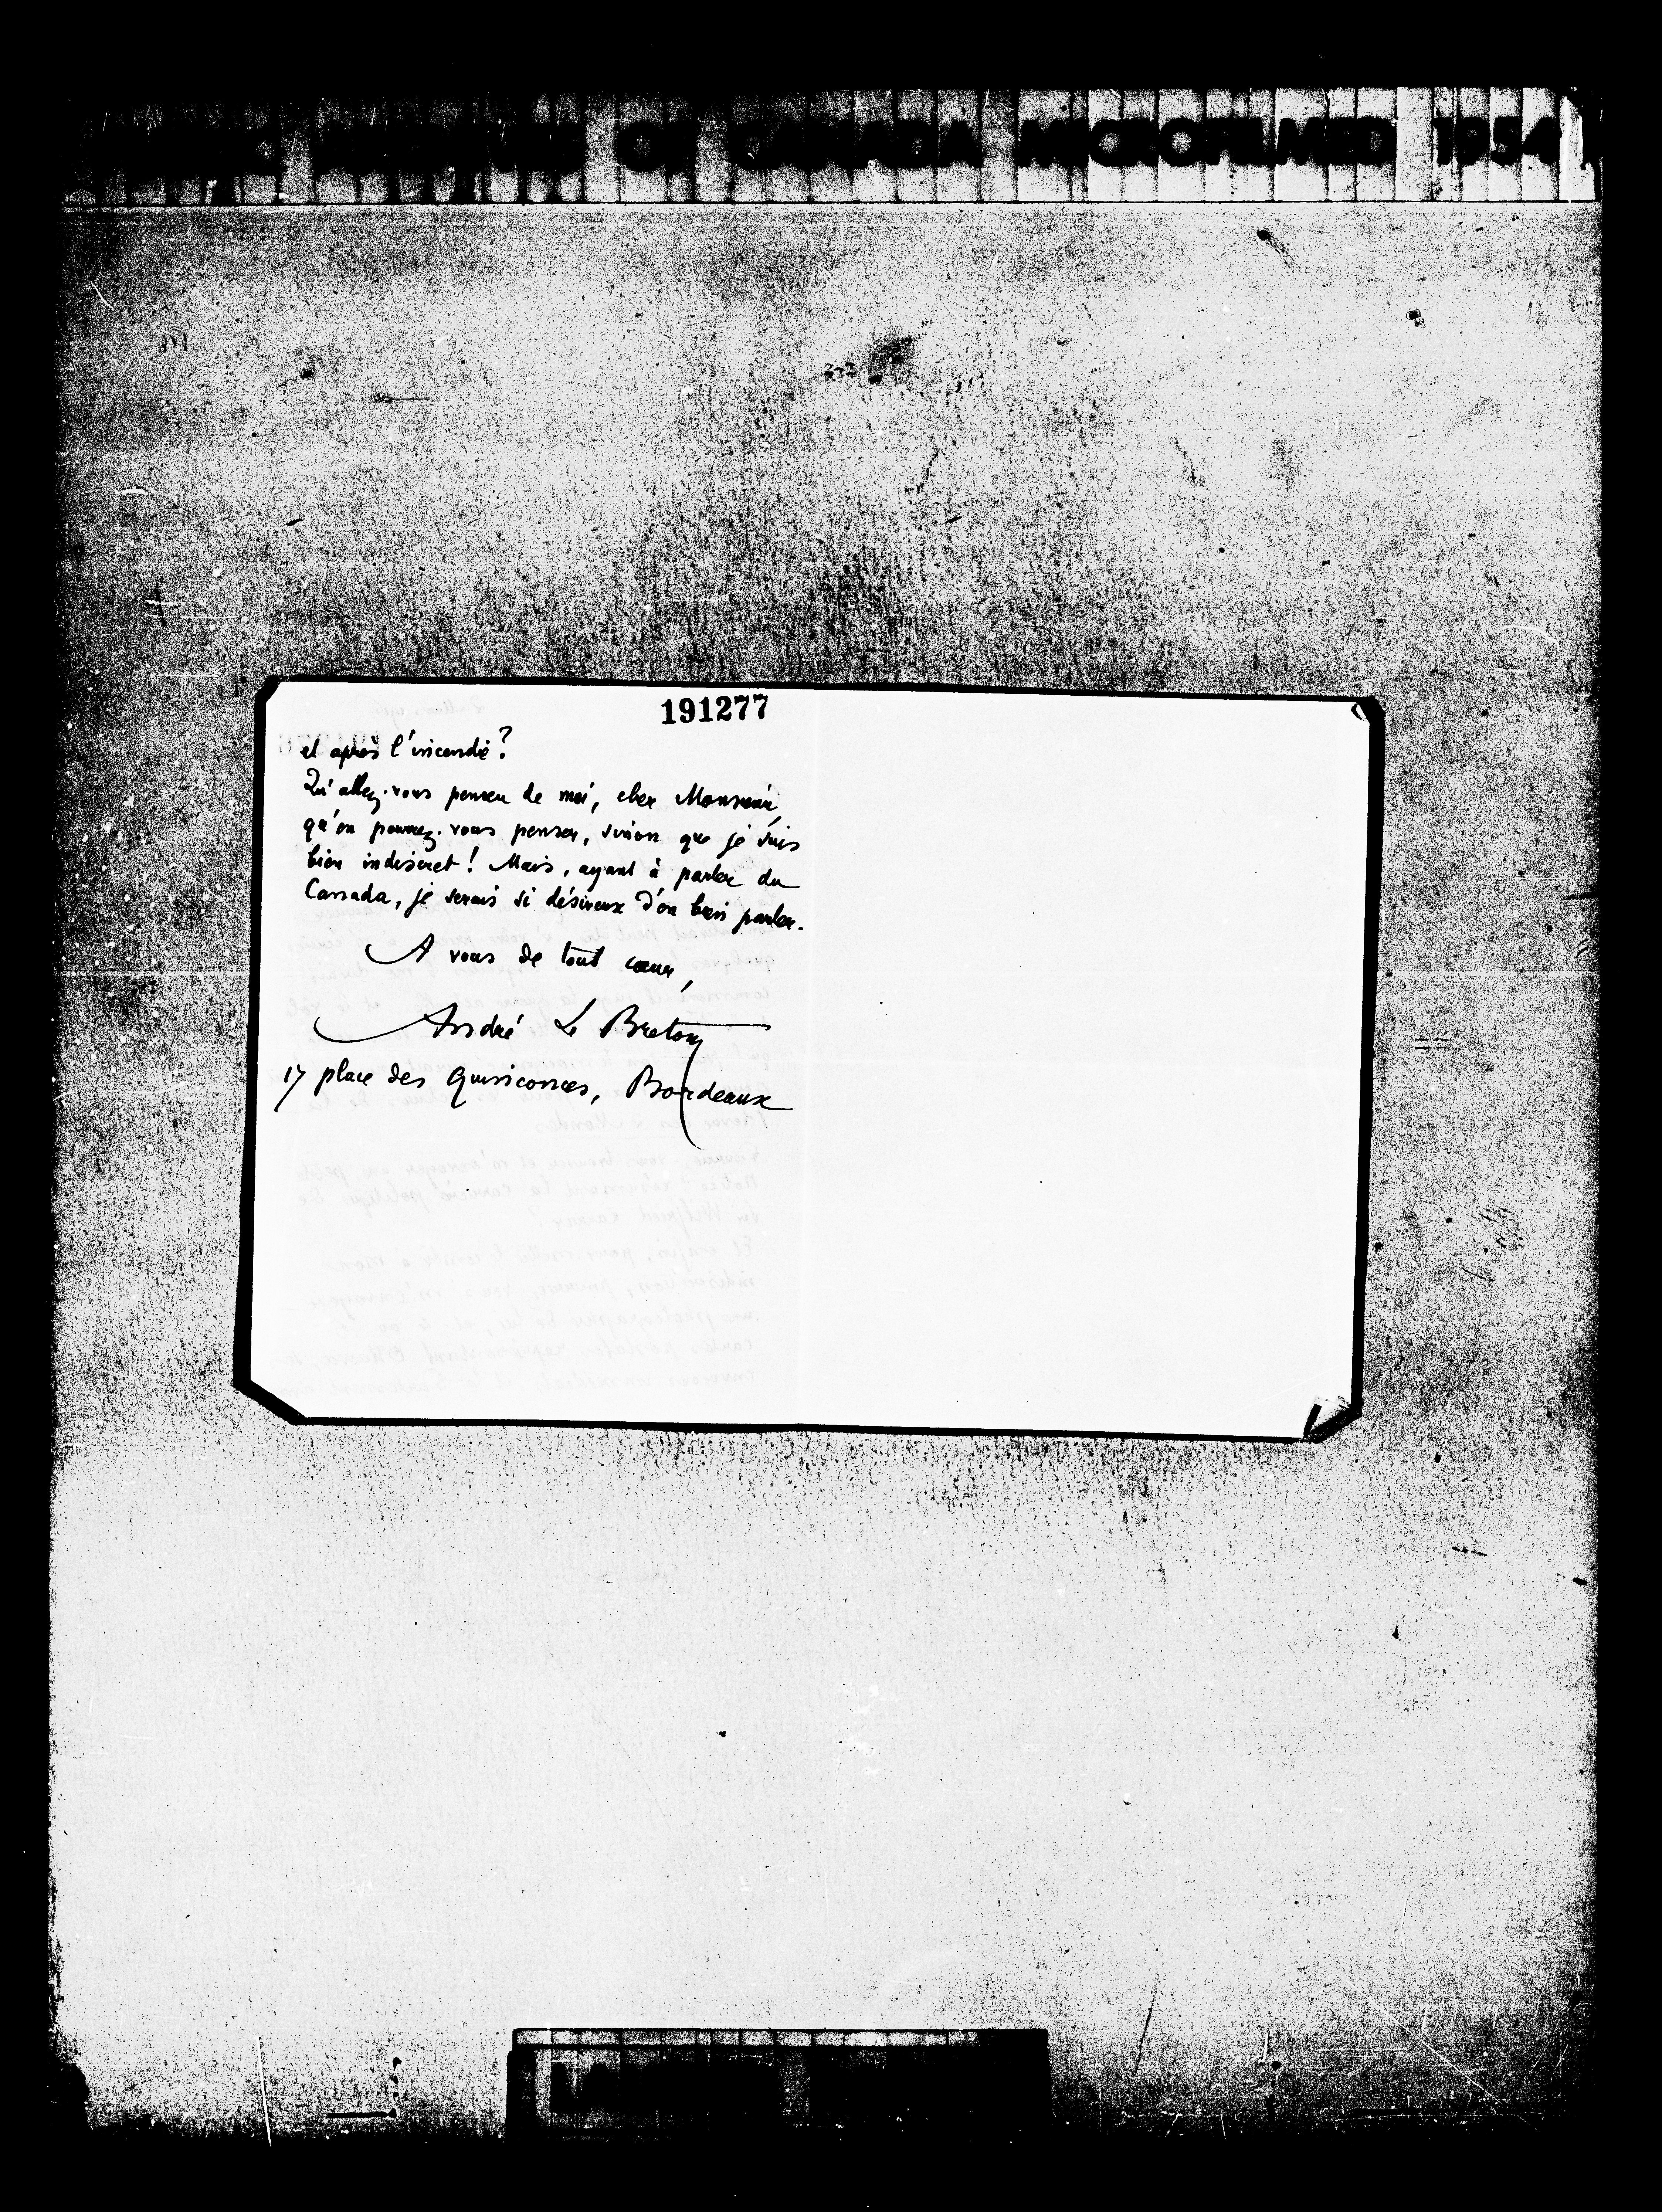 PUBLIC ARCHIVES OF CANADA MICROFILMED 1954
191277
et après l'incendie?
Qu'allez-vous penser de moi, cher Monsieur,
qu'en pourrez-vous penser, sinon que je suis
bien indiscret! Mais, ayant à parler du
Canada, je serais si désireux d'en bien parler.
A vous de tout cœur,
André Le Breton
17 place des Quinconces, Bordeaux